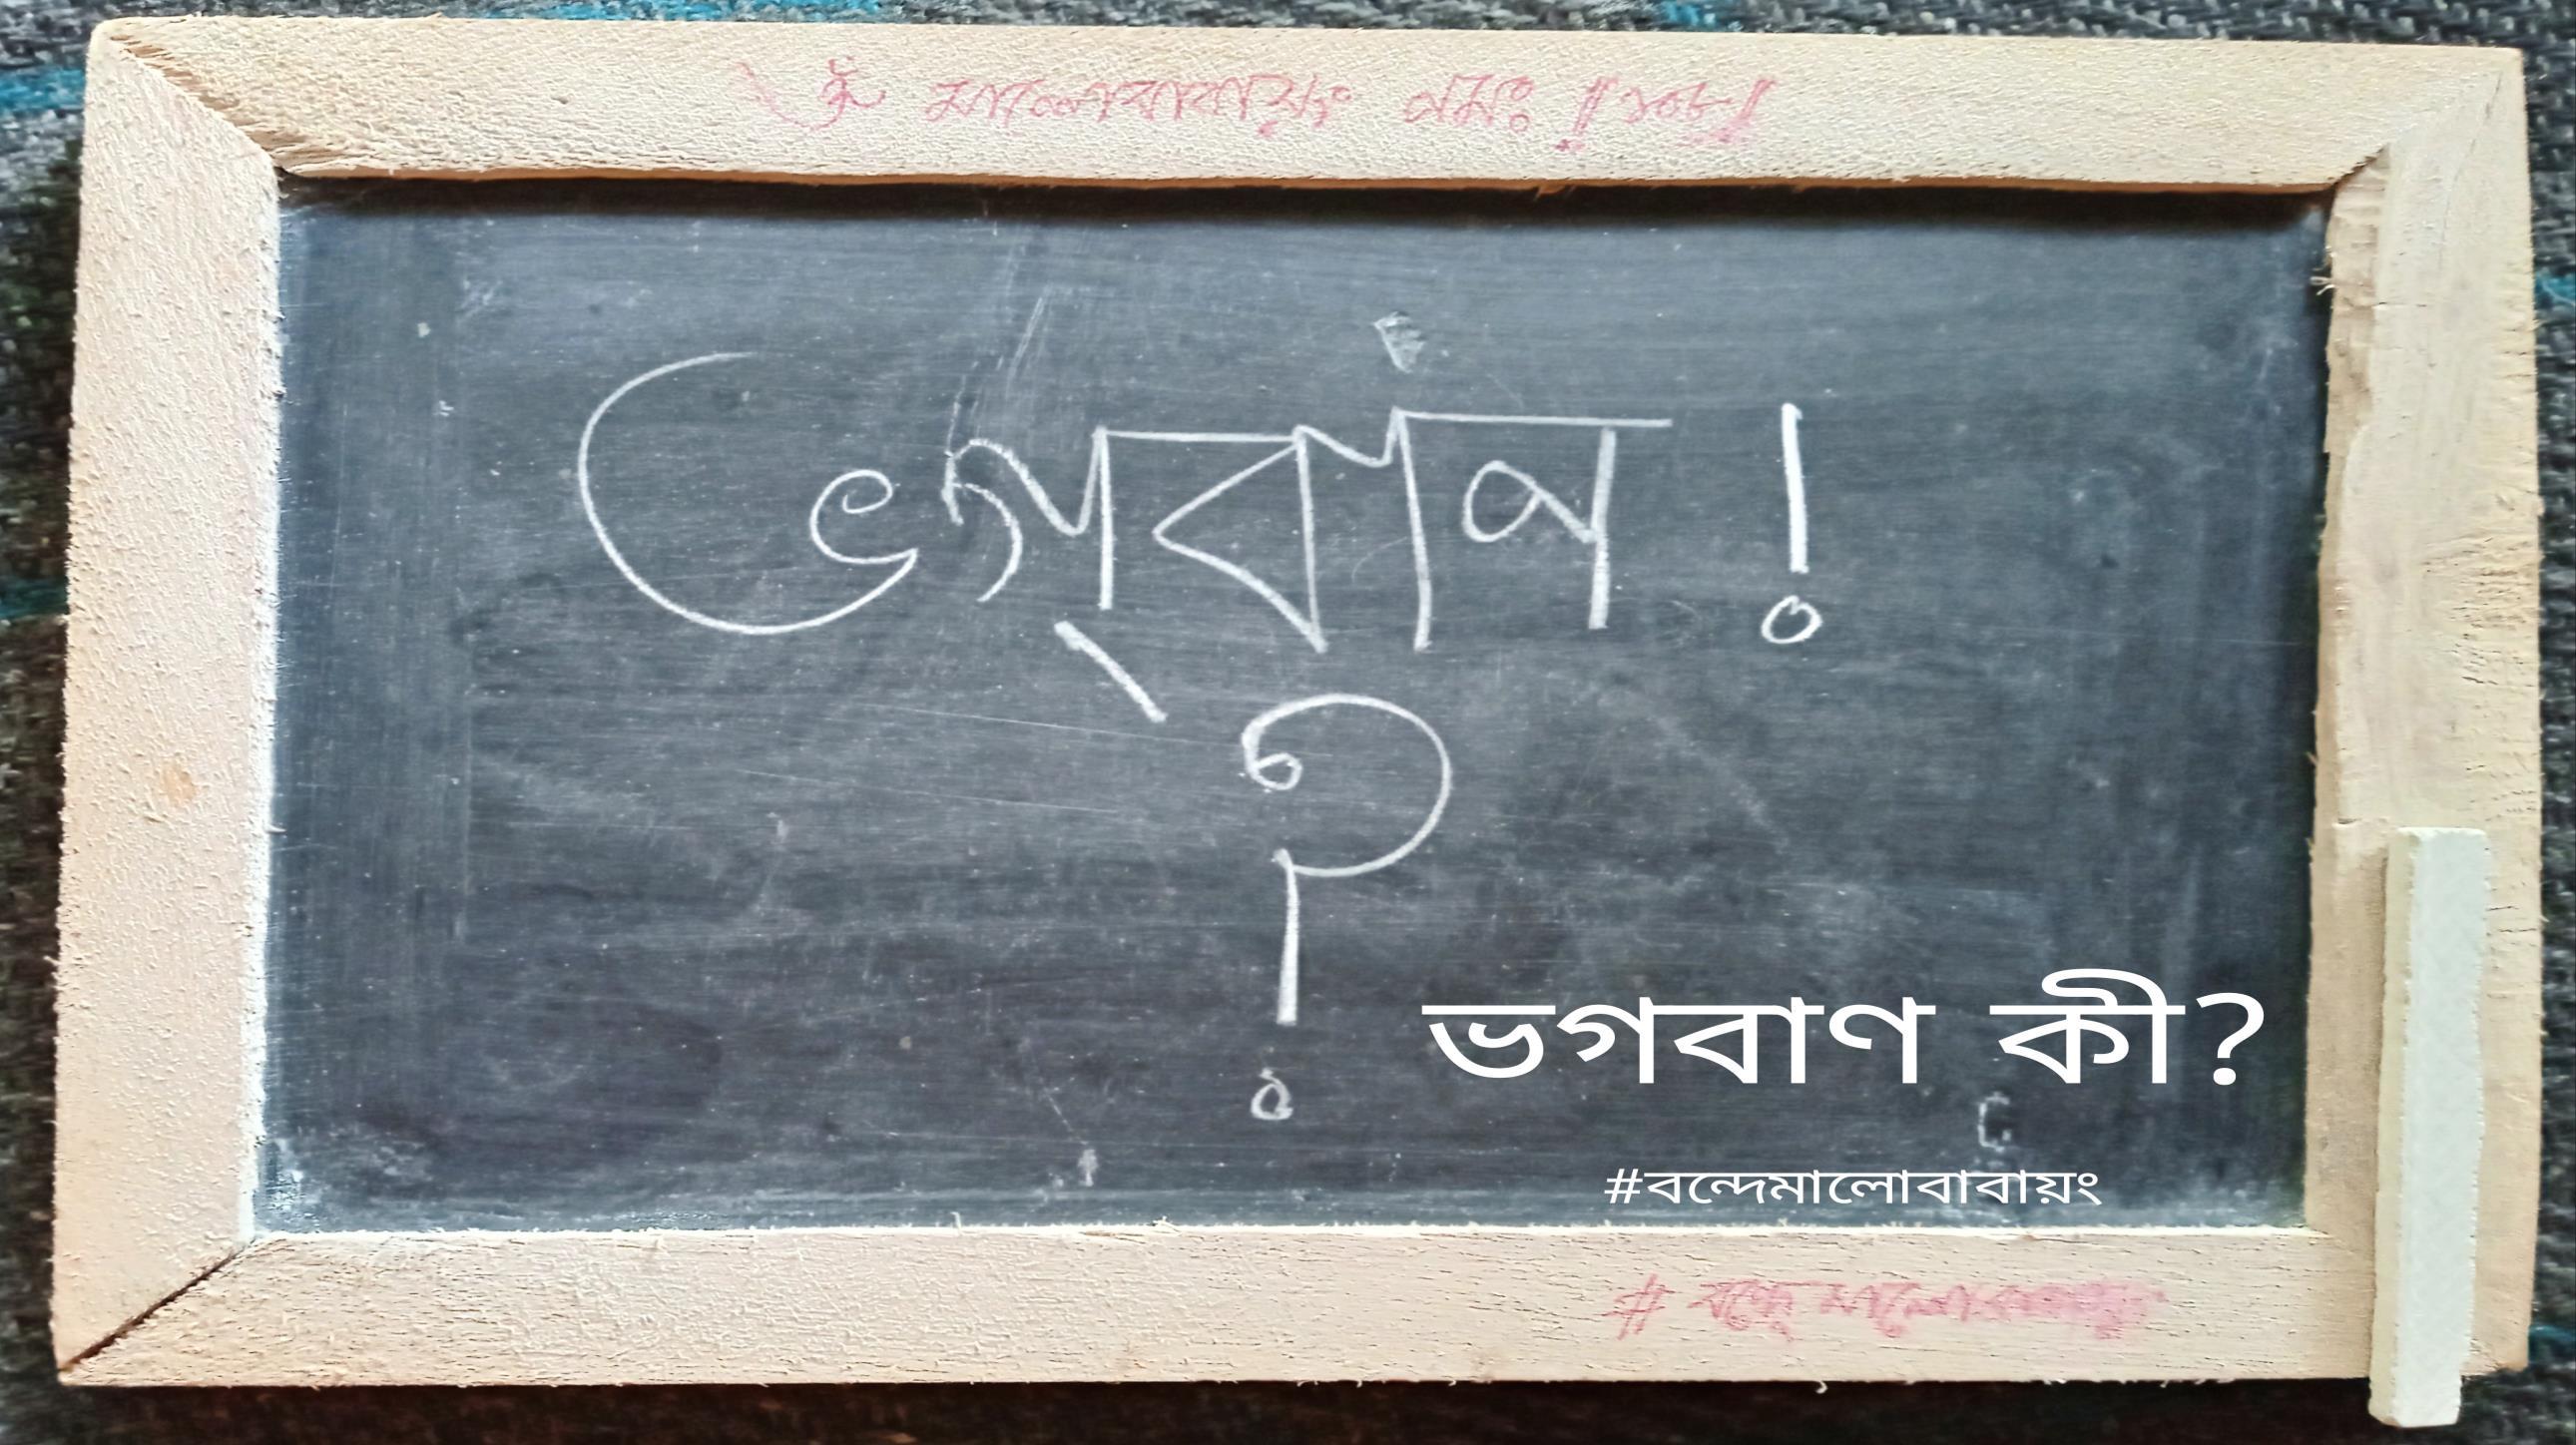 ওঁ মালোবাবায়ং নমঃ ‖১০৮‖
ভগবান !
?
ভগবাণ কী?
#বন্দেমালোবাবায়ং
# বন্দে মালোবাবায়ং